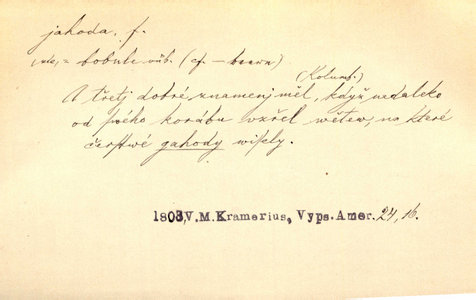 jahoda, f.
= bobule vůb. (cf.
(Kolumb.)
A třetj dobré znamenj měl, když nedaleko
od swého korábu vzřel wětew, na které
čerstwé gahody wisely.
1803, V. M. Kramerius, Vyps. Amer. 24, 16.